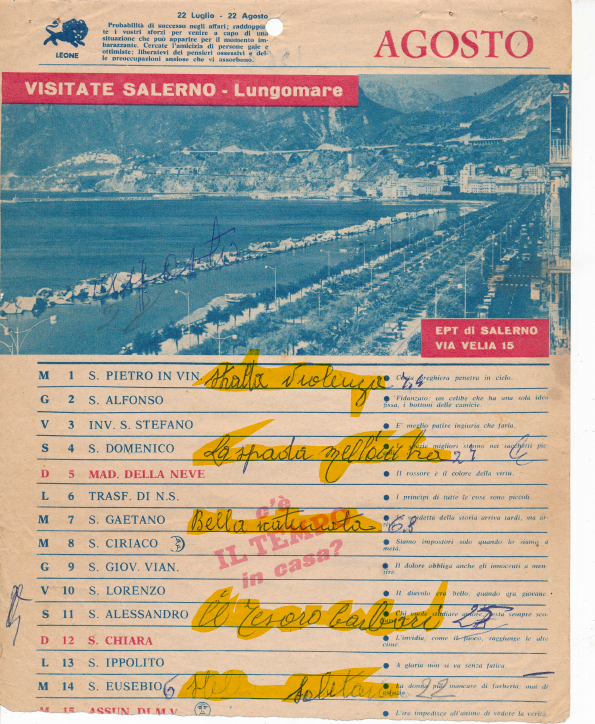 22 Luglio - 22 Agosto
Probabilità di successo negli affari; raddoppia-
te i vostri sforzi per venire a capo di una
situazione che può apparire per il momento im-
barazzante. Cercate l'amicizia di persone gaie e
ottimiste; liberatevi dei pensieri ossessivi e del-
le preoccupazioni ansiose che vi assorbono.
LEONE
AGOSTO
VISITATE SALERNO - Lungomare
EPT di SALERNO
VIA VELIA 15
M 1 S. PIETRO IN VIN. violenza penetra in cielo.
G 2 S. ALFONSO Fidanzato: un celibe che ha una sola idea
fissa, i bottoni delle camicie.
V 3 INV. S. STEFANO E' meglio patire ingiuria che farla.
S 4 S. DOMENICO La spada nell'ombra 27 migliori stanno nei sacchetti pic-
D 5 MAD. DELLA NEVE Il rossore è il colore della virtù.
L 6 TRASF. DI N.S. I principi di tutte le cose sono piccoli.
M 7 S. GAETANO Bella 68 vendetta della storia arriva tardi, ma ar-
c'è
IL TEMPO
in casa?
M 8 S. CIRIACO Siamo impostori solo quando lo siamo a
metà.
G 9 S. GIOV. VIAN. Il dolore obbliga anche gli innocenti a men-
tire.
V 10 S. LORENZO Il diavolo era bello, quando era giovane.
S 11 S. ALESSANDRO Il Tesoro 25
D 12 S. CHIARA L'invidia, come il fuoco, raggiunge le alte
cime.
L 13 S. IPPOLITO A gloria non si va senza fatica.
M 14 S. EUSEBIO 22 La donna può mancare di furberia, mai di
M 15 ASSUN. DI M.V. L'ira impedisce all'animo di vedere la verità.